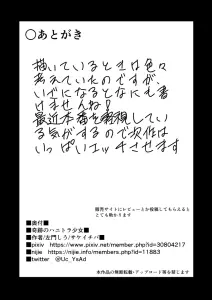 ○あとがき
描いているときは色々
考えていたのですが、
いざになるとなにも書
けませんね!
最近本番を軽視してい
る気がするので次作は
いっぱいエッチさせます
販売サイトにレビューとか投稿してもらえると
とても助かります
■奥付■
■奇跡のハニトラ少女■
■作者/左門しう/サヤイチバ■
■pixiv https://www.pixiv.net/member.php?id=30804217
■nijie https://nijie.info/members.php?id=11883
■twitter @Uc_YsAd
本作品の無断転載・アップロード等を禁じます